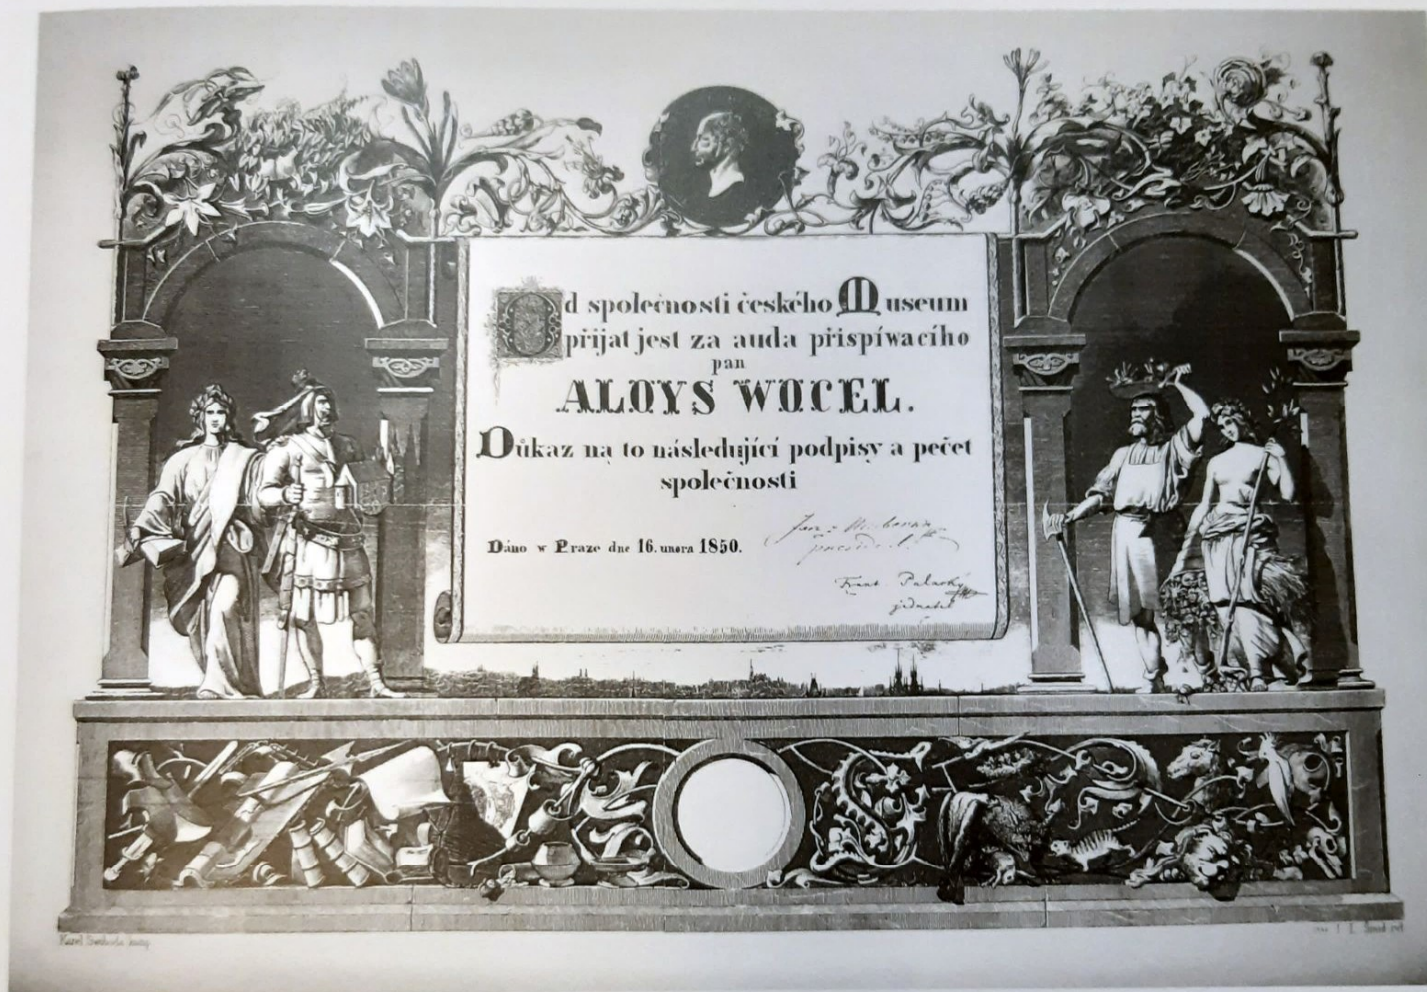 Od společnosti českého Museum
přijat jest za auda přispíwacího
pan
ALOYS WOCEL.
Důkaz na to následující podpisy a pečet
společnosti
Dáno w Praze dne 16. unora 1850.
Frant Palacký
jednatel